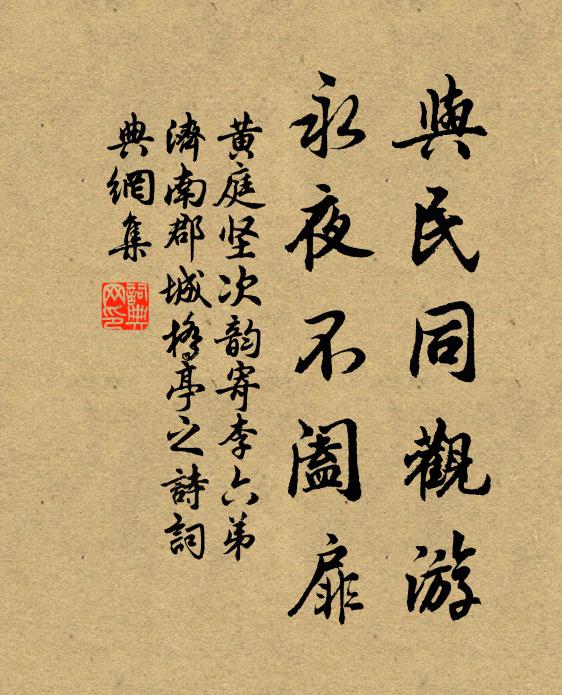 與民同觀游
永夜不闔扉
黄庭坚次韵寄李六弟
濟南郡城橋亭之詩詞
典網集
詞典
网印